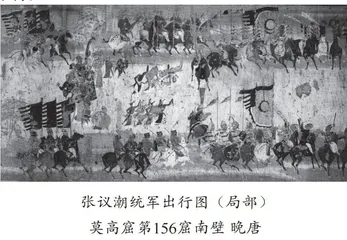 张议潮统军出行图（局部）
莫高窟第156窟南壁 晚唐